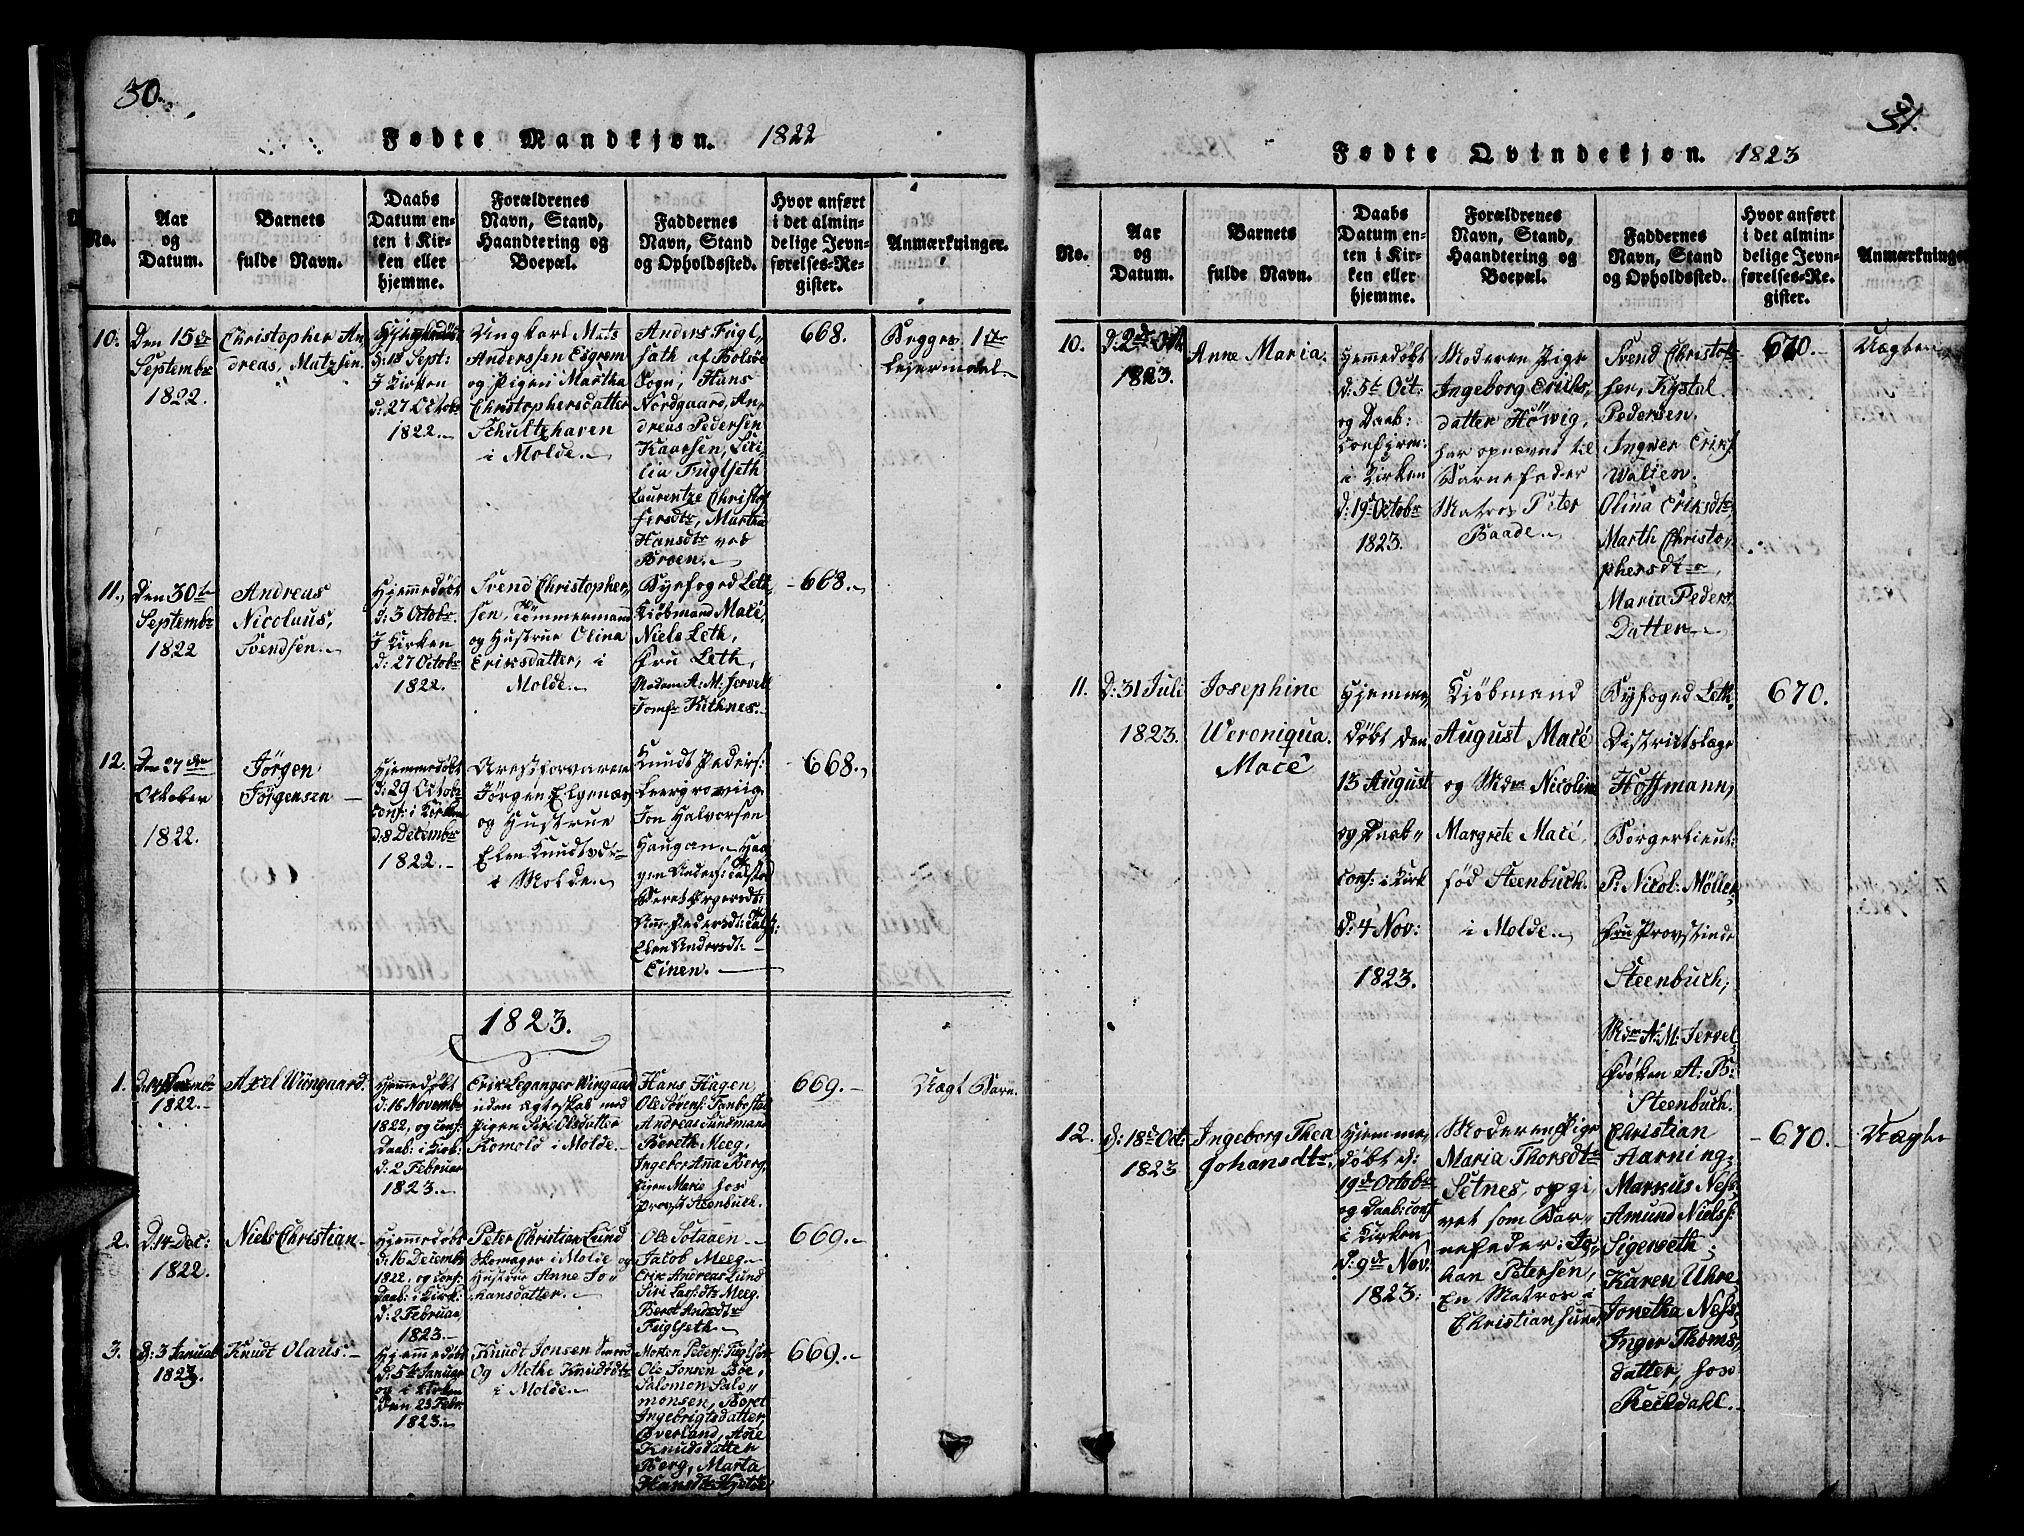 30.
Fødte Mandkjøn. 1822
No.
Aar
og
Datum.
Barnets
fulde Navn.
Daabs
Datum en-
ten i Kir-
ken eller
hjemme.
Forældrenes
Navn, Stand,
Haandtering og
Boepæl.
Faddernes
Navn, Stand
og Opholdssted.
Hvor anført
i det almin-
delige Jevn-
førelses-Re-
gister.
Anmærkninger.
10.
Den 15de
Septembr
1822.
Christopher An
dreas, Matzsen.
Hjemmedøbt
d: 18 Sept:
I Kirken
d: 27 Octobr
1822.
Ungkarl Mats
Anderssen Eegrem
og Pigen Martha
Christophersdatter
Schultzhaven
i Molde.
Anders Fugl,
sath af Bolsøe
Sogn, Hans
Nordgaard, An,
dreas Pedersen
Kaarsen,
lia Fuglseth
Laurentze Christof
fersdtr, Martha
Hansdtr ved
Broen.
668.
Begges 1ste
Leiermaal.
11.
Den 30te
Septembr
1822
Andreas
Nicolaus,
Svendsen.
Hjemmedøbt
d: 3 Octobr.
I Kirken
d: 27 Octobr
1822.
Svend Christopher,
sen, Tømmermand
og Hustrue Olina
Eriksdatter, i
Molde.
Byefoged Leth
Kjøbmand Macé,
Niels Leth,
Fru Leth,
Madam A: M: Jervell
Jomfr Kithnes.
668.
12.
Den 27de
October
1822.
Jørgen
Jørgensen
Hjemmedøbt
d: 29 Octobr
conf: i Kirken
d: 8 Decembr
1822.
Arrestforvarer
Jørgen Elgenæs
og Hustrue
Elen Knudtsdr
i Molde.
Knudt Peders:
Jon Halvorsen
Haugan. Haa
gen Anders:
Beret
Elen Andersdt:
Einen.
668.
1823.
1.
1822.
Axel Wiingaard.
Hjemmedøbt
d: 16 Novembr
1822, og conf:
Daab: i Kirk:
d: 2 Februar
1823.
Erik Leganger Wingaar
uden Ægteskab med
Pigen Siri Olsdatter
Romold i Molde.
Hans Hagen,
Ole Sørens: Tanbostad
Andreas Sundmand
Bereth Meeg,
Ingebor Anna Berg,
Pigen Marie hos
Provst Steenbuch.
669.
Uægt Barn.
2.
D: 14 Dec:
1822.
Niels Christian
Hjemmedøbt
d: 16 Decembr
1822, og conf:
Daab: i Kirk:
d: 2 Februar
1823.
Peter Christian Lund
Skomager i Molde og
Hustrue Anne Jo
hansdatter.
Ole Sotaaen
Jacob Meeg
Erik Andreas Lund
Siri Lars:dtr Meeg.
Beret Andrsdtr
Fuglseth
669.
3.
D: 3 Januar
1823.
Knudt Olaus.
Hjemmedøbt
d: 5te Januar
og i Kirken
den 23 Febr
1823.
Knudt Jonsen
Og Methe Knudsdtr
i Molde.
Morten Peders: Fuglset
Ole Jonsen Bøe,
Salomon Salo
monsen, Beret
Ingebrigtsdatter
Øverland, Ane
Knudsdatter
Berg, Marta
Hansdtr
669.
31.
Fødte Qvindekjøn. 1823
No.
Aar
og
Datum.
Barnets
fulde Navn.
Daabs
Datum en-
ten i Kir-
ken eller
hjemme.
Forældrenes
Navn, Stand,
Haandtering og
Boepæl.
Faddernes
Navn, Stand
og Opholdssted.
Hvor anført
i det almin-
delige Jevn-
førelses-Re-
gister.
Anmærkninger
10.
D: 2de Oct
1823.
Anne Maria.
Hjemmedøbt
d: 5te Oct:
og Daab:
confirm:
i Kirken
d: 19de Octobr
1823.
Moderen Pige
Ingeborg Eriks,
datter Høwig,
har opnævnt til
Barnefader
Matros Peter
Baade.
Svend Christof,
fer,
Pedersen.
Ingver Eriks
Walien.
Olina Eriksdtr
Marth Christo,
phersdtr
Maria Peders
Datter
670.
Uægte
11.
D: 31 Juli
1823.
Josephine
Weroniqua.
Macé
Hjemme,
døbt den
13 August
og Daab
conf: i Kirk
d: 4 Nov:
1823.
Kjøbmand
August Macé
og Mdm Nicoline
Margrete Macé
fød Steenbuch.
i Molde.
Byfoged Leth.
Districtslæge
Hoffmann,
Borgerlieut:
P: Nicol: Møller,
Fru Provstinde
Steenbuch,
Mdm A: M: Jervel
Frøken A: B:
Steenbuch.
670.
12.
D: 18de Oct.
1823
Ingeborg Thea
Johansdtr.
Hjemme
døbt d:
19de Octobr
og Daab: conf
i Kirken
D: 9de Nov.
1823:
Moderen Pige
Maria Thorsdtr
Setnes, opgi
vet som Bar
nefader: Jo,
han Petersen,
En Matros i
Christiansund
Christian
Aarning
Markus Ness
Amund Niels:
Sigerseth
Karen Uhre
Jonetha Ness
Inger Thoms,
datter, hos
Reckdahl.
670.
Uægte